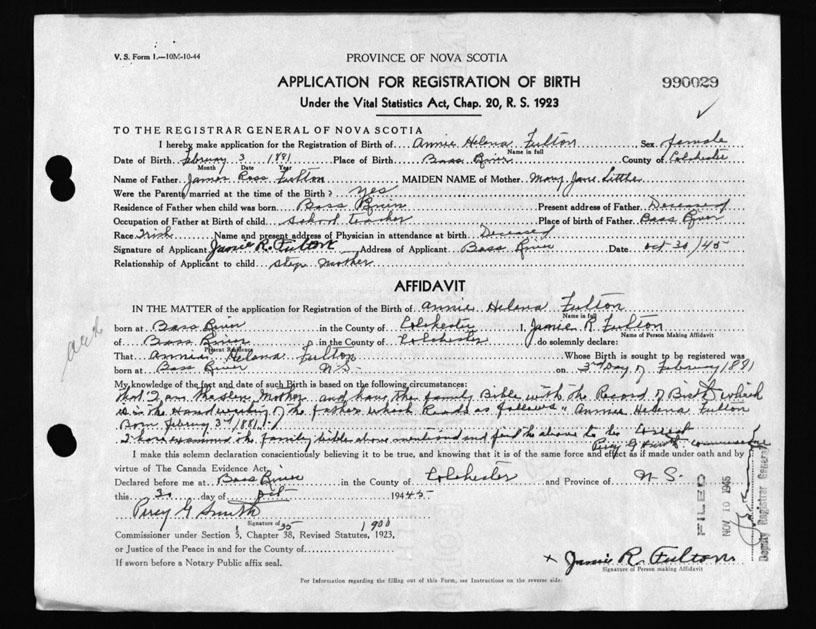 V. S. Form 1.—10M-10-44
PROVINCE OF NOVA SCOTIA
APPLICATION FOR REGISTRATION OF BIRTH
990029
Under the Vital Statistics Act, Chap. 20, R. S. 1923
TO THE REGISTRAR GENERAL OF NOVA SCOTIA
I hereby make application for the Registration of Birth of Annie Helena Fulton Sex female
Name in full
Date of Birth Februry 3 1881 Place of Birth Bass River County of Colchester
Month Date Year
Name of Father James Ross Fulton MAIDEN NAME of Mother Mary Jane
Were the Parents married at the time of the Birth? yes
Residence of Father when child was born Bass River Present address of Father Deceased
Occupation of Father at Birth of child school teacher Place of birth of Father Bass River
Race Irish Name and present address of Physician in attendance at birth Deceased
Signature of Applicant Janie R. Fulton Address of Applicant Bass River Date Oct 30/45
Relationship of Applicant to child step mother
AFFIDAVIT
IN THE MATTER of the application for Registration of the Birth of Annie Helena Fulton
Name in full
born at Bass River in the County of Colchester I, Janie R Fulton
Name of Person Making Affidavit
of Bass River in the County of Colchester do solemnly declare:
Present Residence
That Annie Helena Fulton Whose Birth is sought to be registered was
born at Bass River N.S. on 3rd Day of February 1881
My knowledge of the fact and date of such Birth is based on the following circumstances:
that I am the step Mother and have the family Bible with the Record of Birth which
is in the Handwriting of the father which Reads as follows " Annie Helena Fulton
Born Februry 3rd 1881
I have examined the family bible above mentioned and find the above to be Correct
Percy G Smith Commissioner
I make this solemn declaration conscientiously believing it to be true, and knowing that it is of the same force and effect as if made under oath and by
virtue of The Canada Evidence Act.
Declared before me at Bass River in the County of Colchester and Province of N.S.
this 30 day of Oct 194 45
Percy G Smith
Signature of 35 1900
Commissioner under Section 5, Chapter 38, Revised Statutes, 1923,
or Justice of the Peace in and for the County of
If sworn before a Notary Public affix seal.
x Janie R. Fulton
Signature of Person making Affidavit
For Information regarding the filling out of this Form, see Instructions on the reverse side.
FILED
NOV 10 1945
Deputy Registrar General